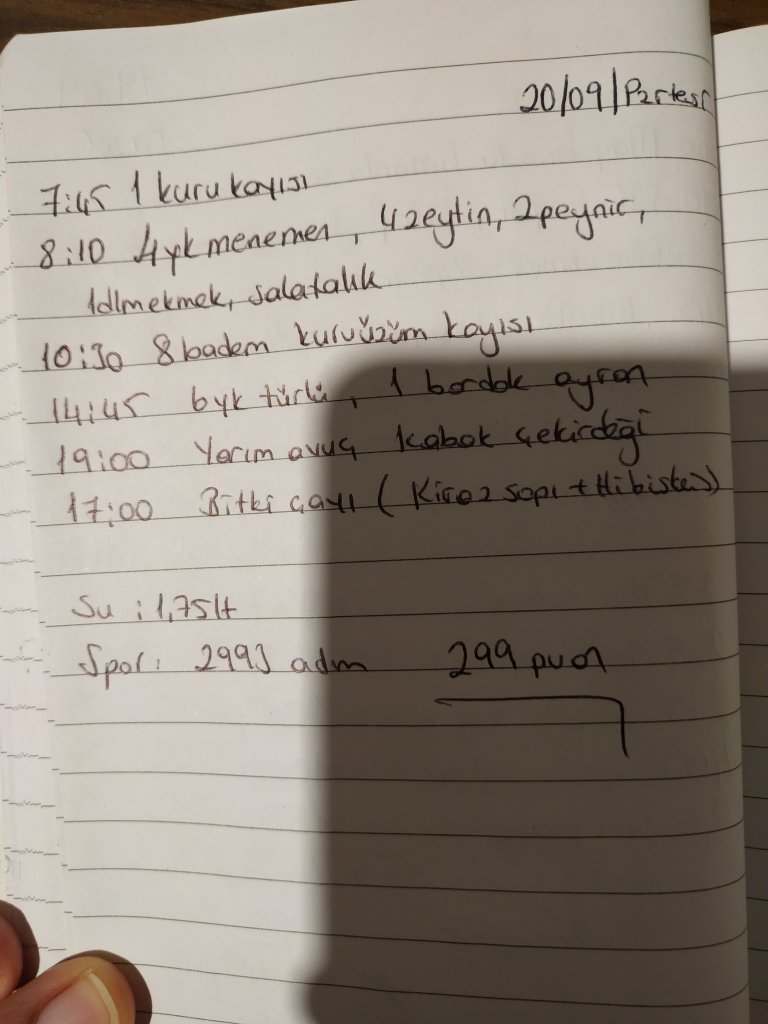 20/09/Pzrtesi
7:45 1 kuru kayısı
8:10 4yk menemen, 4zeytin, 2peynir,
1dlmekmek, salatalık
10:30 8badem kuruüzüm kayısı
14:45 6yk türlü, 1 bardak ayran
19:00 Yarım avuç kabak çekirdeği
17:00 Bitki çayı (Kiraz sapı + Hibisküs)
Su : 1,75lt
Spor: 2993 adım 299 puan